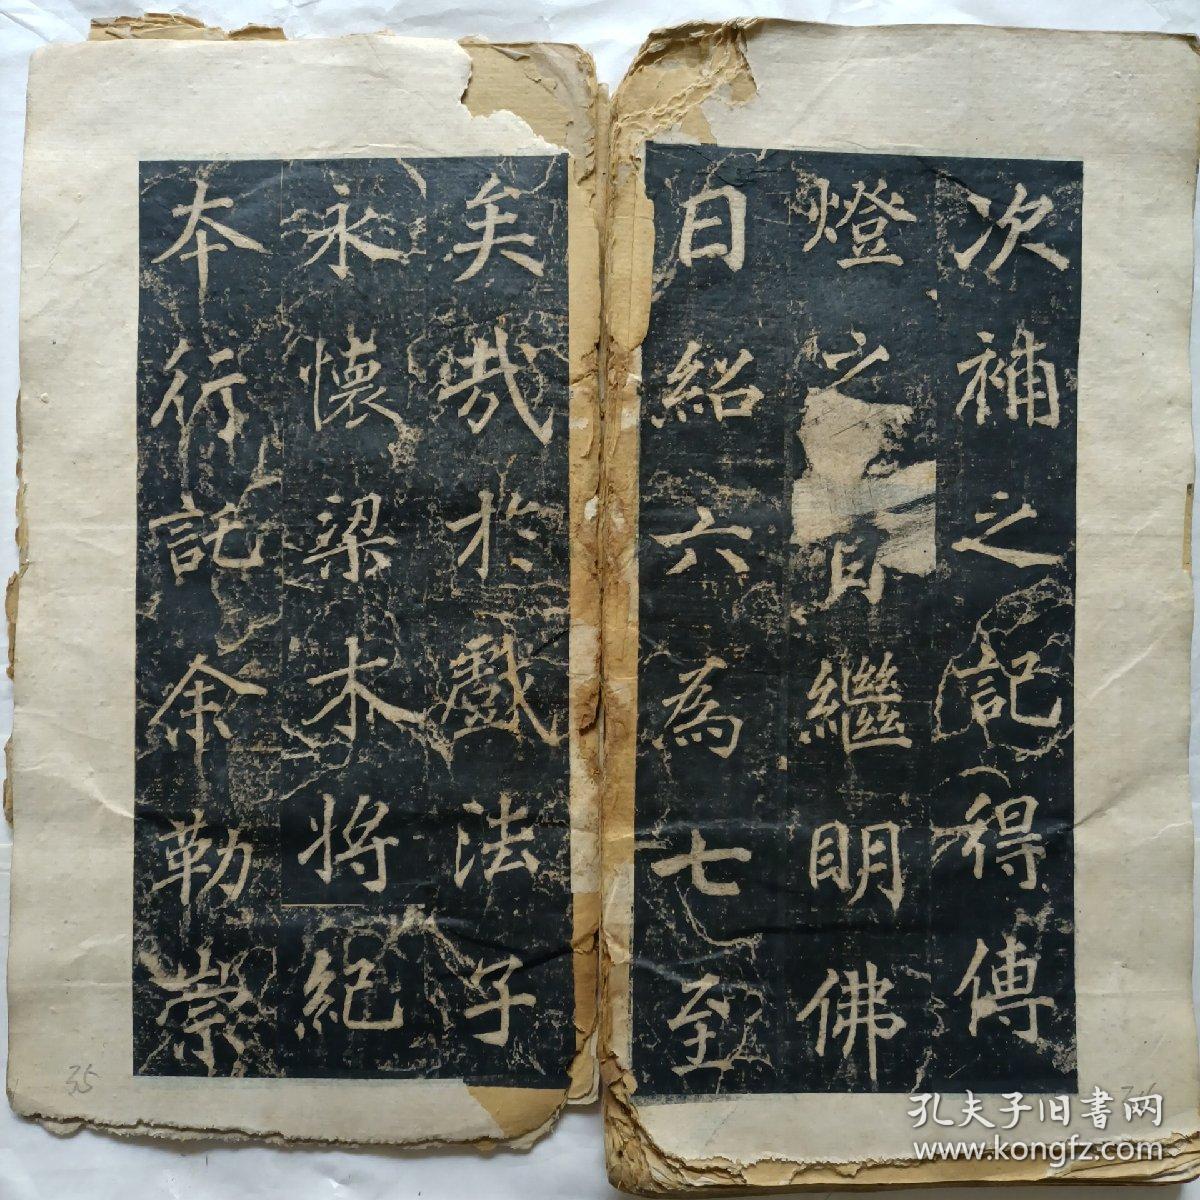 次補之記得傳
燈之日繼明佛
日紹六為七至
矣哉於戲法子
永懷梁木將紀
本行託余勒崇
35
孔夫子旧書网
www.kongfz.com